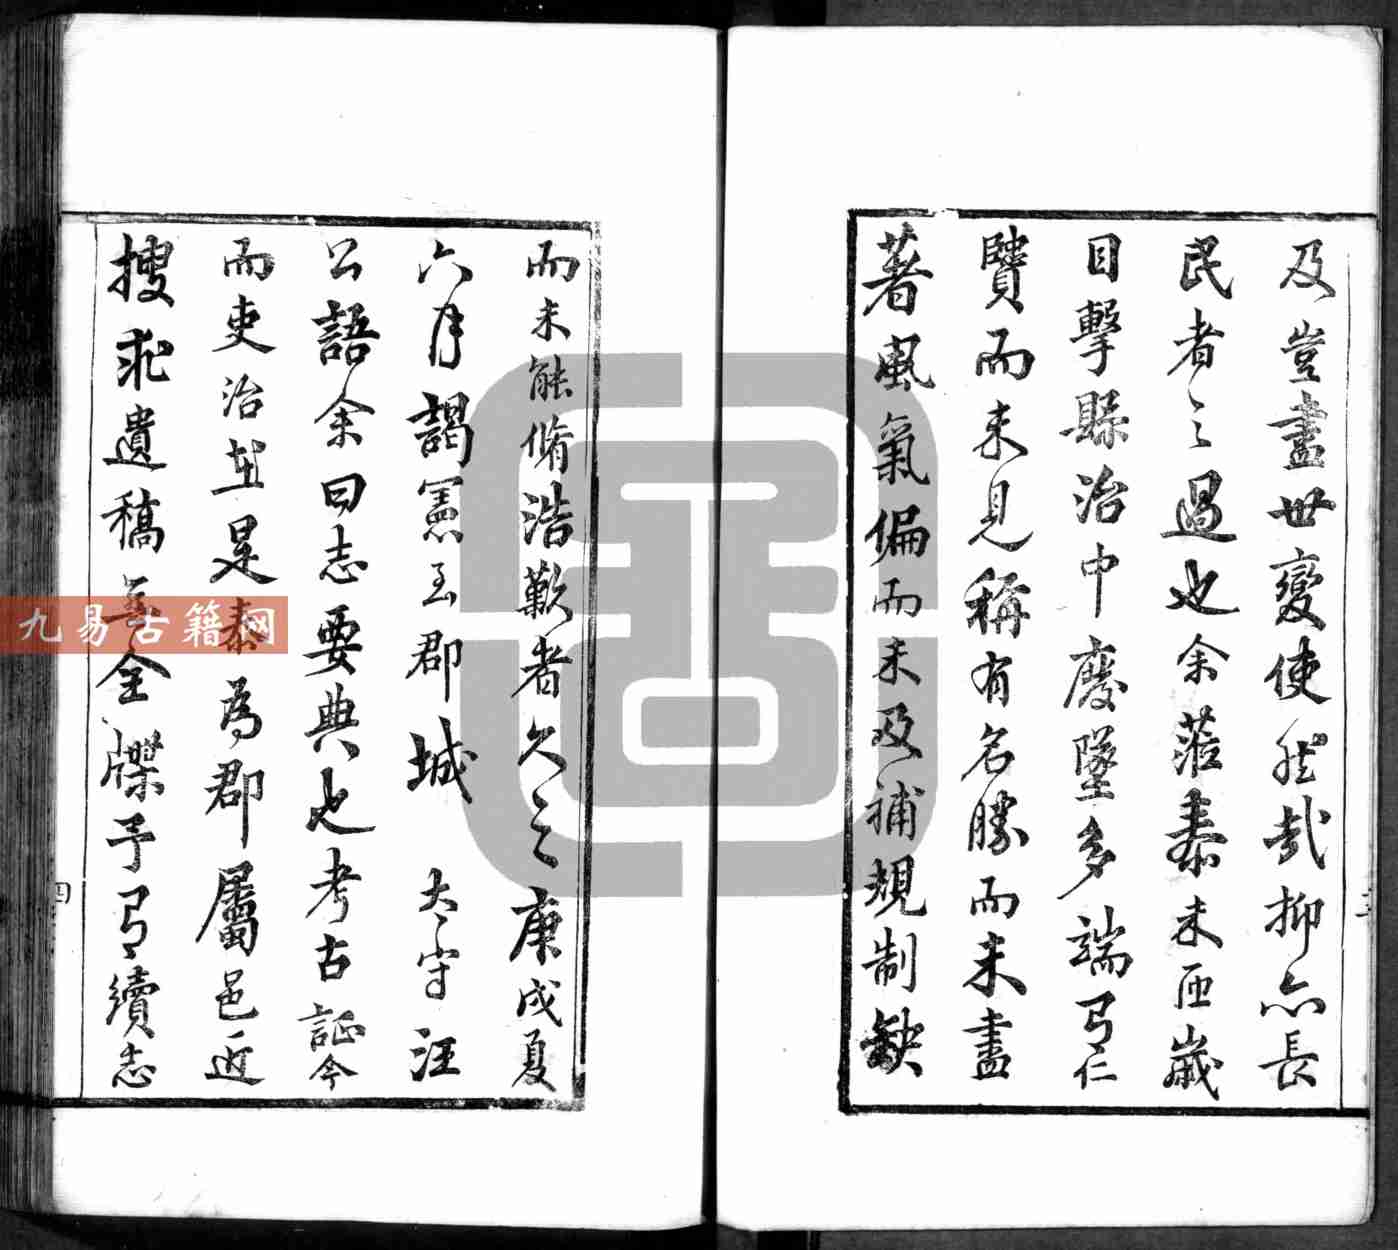 及豈盡世變使然哉抑亦長
民者之過也余蒞泰未匝歲
目擊縣治中廢墜多端弓仁
贒而未見稱有名勝而未盡
著風氣偏而未及補規制缺
而未能脩浩歎者久之庚戌夏
六月謁憲至郡城 太守汪
公語余曰志要典也考古証今
而吏治在是泰為郡屬邑近
搜求遺稿 全牒予弓續志
三
四
九易古籍网